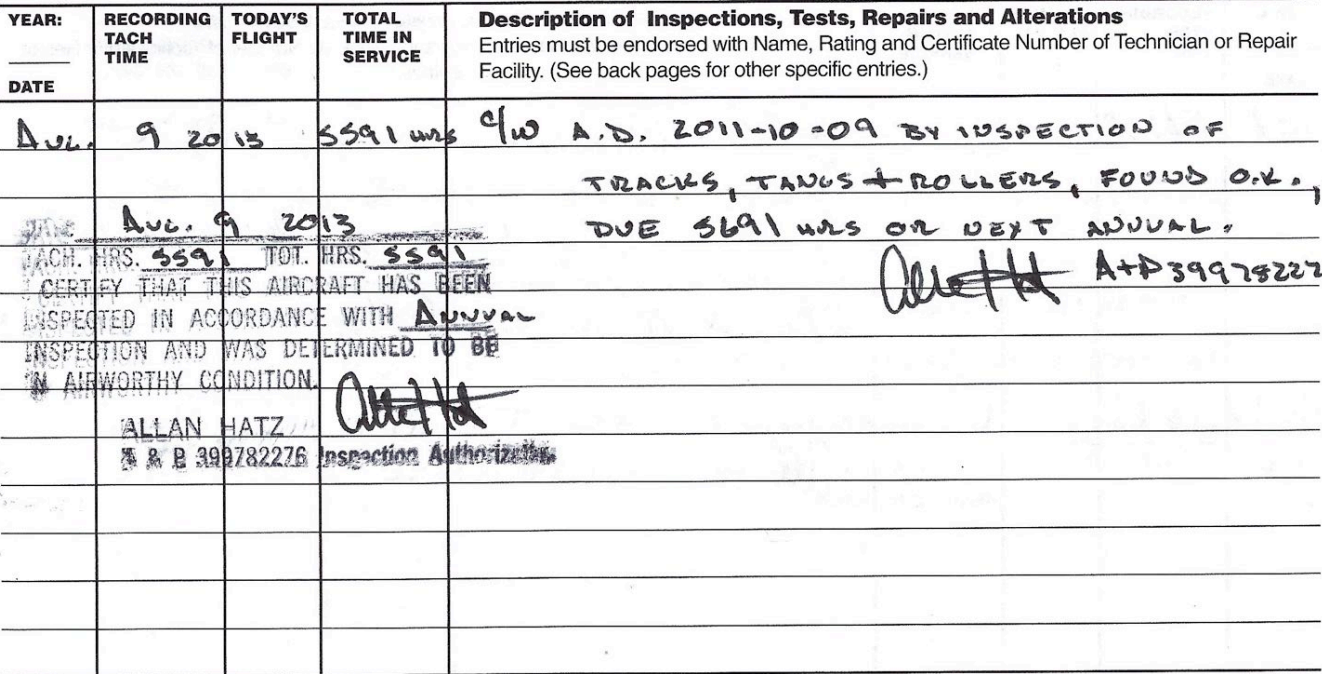 YEAR: RECORDING TACH TIME TODAY'S FLIGHT TOTAL TIME IN SERVICE Description of Inspections, Tests, Repairs and Alterations
Entries must be endorsed with Name, Rating and Certificate Number of Technician or Repair
Facility. (See back pages for other specific entries.)
DATE
AUG. 9 2013 5591 HRS C/W A.D. 2011-10-09 BY INSPECTION OF
TRACKS, TANGS + ROLLERS, FOUND O.K.,
DUE 5691 HRS OR NEXT ANNUAL.
A+P 39978227
DATE AUG. 9 2013
TACH. HRS. 5591 TOT. HRS. 5591
I CERTIFY THAT THIS AIRCRAFT HAS BEEN
INSPECTED IN ACCORDANCE WITH ANNUAL
INSPECTION AND WAS DETERMINED TO BE
IN AIRWORTHY CONDITION.
ALLAN HATZ
A & P 399782276 Inspection Authorization